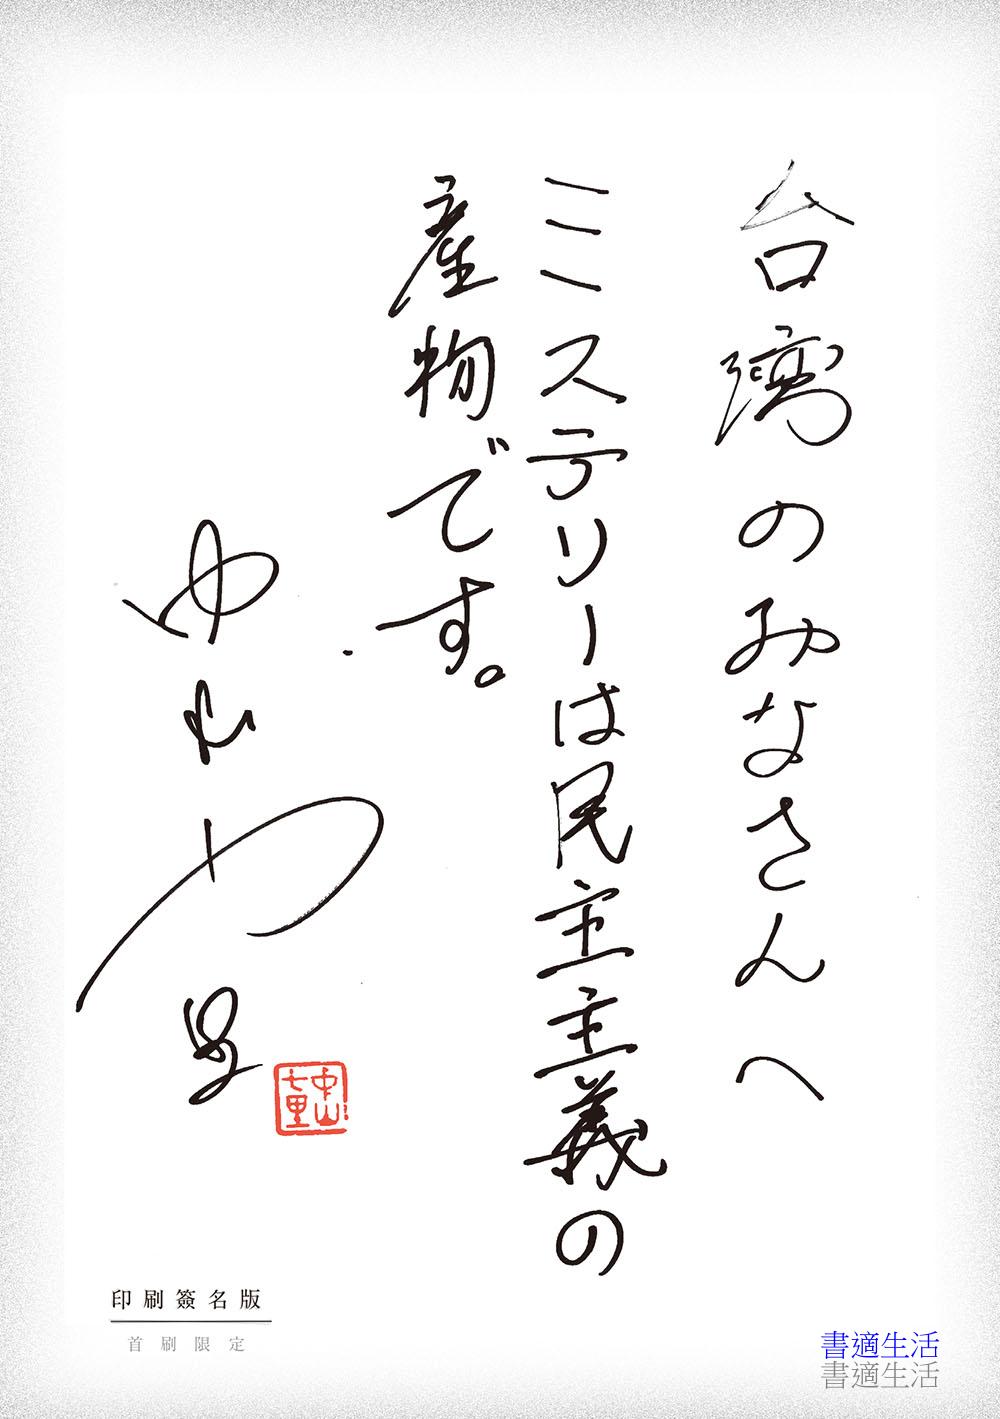 台湾のみなさんへ
ミステリーは民主主義の
産物です。
中山七里
中山
七里
印刷簽名版
首刷限定
書適生活
書適生活